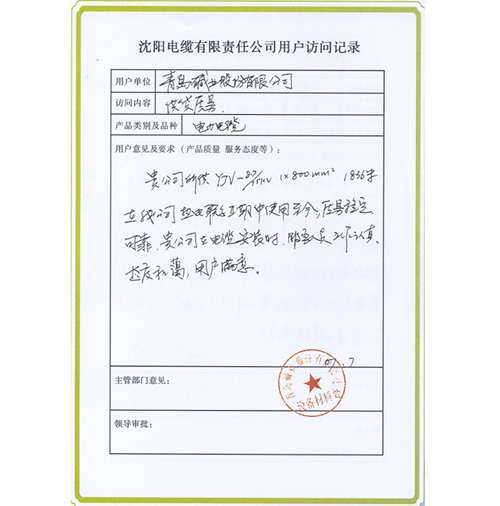 沈阳电缆有限责任公司用户访问记录
用户单位 青岛碱业股份有限公司
访问内容 供货质量
产品类别及品种 电力电缆
用户意见及要求（产品质量 服务态度等）：
贵公司所供 YJV-8.7/10KV 1×800mm² 1836米
在我公司热电联产工期中使用至今，质量稳定
可靠。贵公司在电缆安装时，服务人员工作认真，
态度和蔼，用户满意。
07.7
主管部门意见：
领导审批：